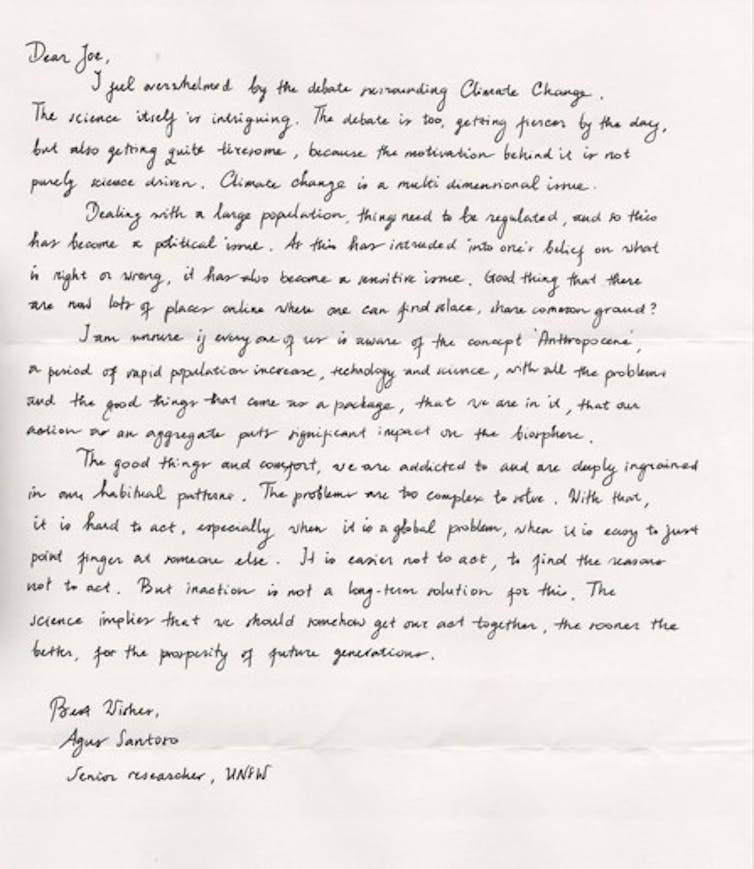 Dear Joe,
I feel overwhelmed by the debate surrounding Climate Change.
The science itself is intriguing. The debate is too, getting fiercer by the day,
but also getting quite tiresome, because the motivation behind it is not
purely science driven. Climate change is a multi dimensional issue.
Dealing with a large population, things need to be regulated, and so this
has become a political issue. As this has intruded into one's belief on what
is right or wrong, it has also become a sensitive issue. Good thing that there
are now lots of places online where one can find solace, share common ground?
I am unsure if every one of us is aware of the concept 'Anthropocene',
a period of rapid population increase, technology and science, with all the problems
and the good things that come as a package, that we are in it, that our
action as an aggregate puts significant impact on the biosphere.
The good things and comfort, we are addicted to and are deeply ingrained
in our habitual patterns. The problems are too complex to solve. With that,
it is hard to act, especially when it is a global problem, when it is easy to just
point finger at someone else. It is easier not to act, to find the reasons
not to act. But inaction is not a long-term solution for this. The
science implies that we should somehow get our act together, the sooner the
better, for the prosperity of future generations.
Best Wishes,
Agus Santoso
Senior researcher, UNSW